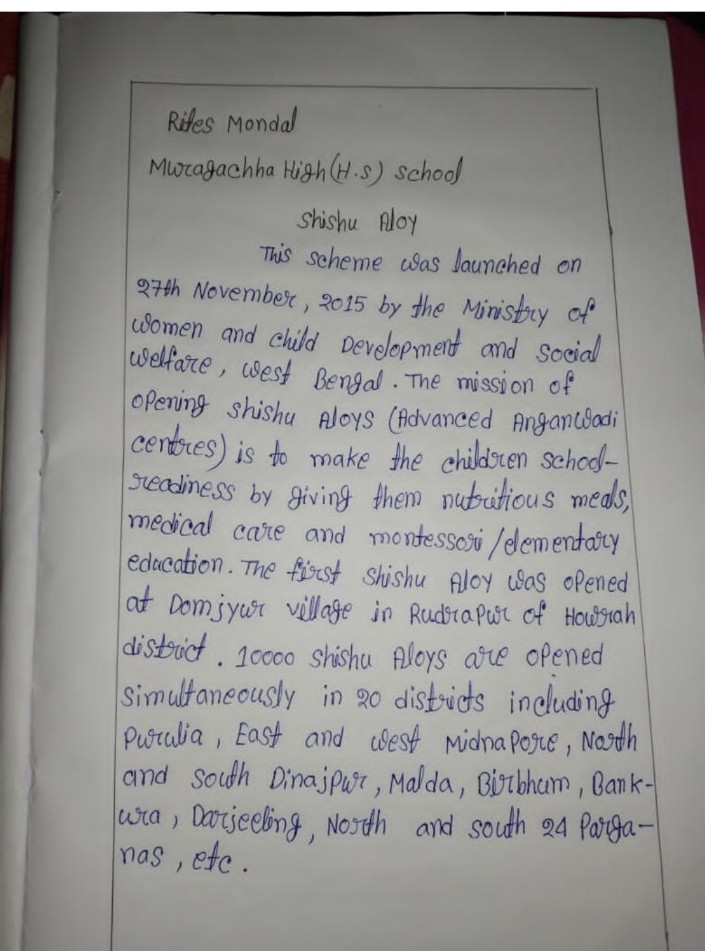 Rites Mondal
Muragachha High (H.S) School
Shishu Aloy
This scheme was launched on
27th November, 2015 by the Ministry of
women and child Development and Social
welfare, west Bengal. The mission of
opening shishu Aloys (Advanced Anganwadi
centres) is to make the children school-
readiness by giving them nutritious meals,
medical care and montessori/elementary
education. The first shishu Aloy was opened
at Domjyur village in Rudrapur of Howrah
district. 10000 shishu Aloys are opened
simultaneously in 20 districts including
Purulia, East and west Midnapore, North
and south Dinajpur, Malda, Birbhum, Bank-
ura, Darjeeling, North and south 24 Parga-
nas, etc.